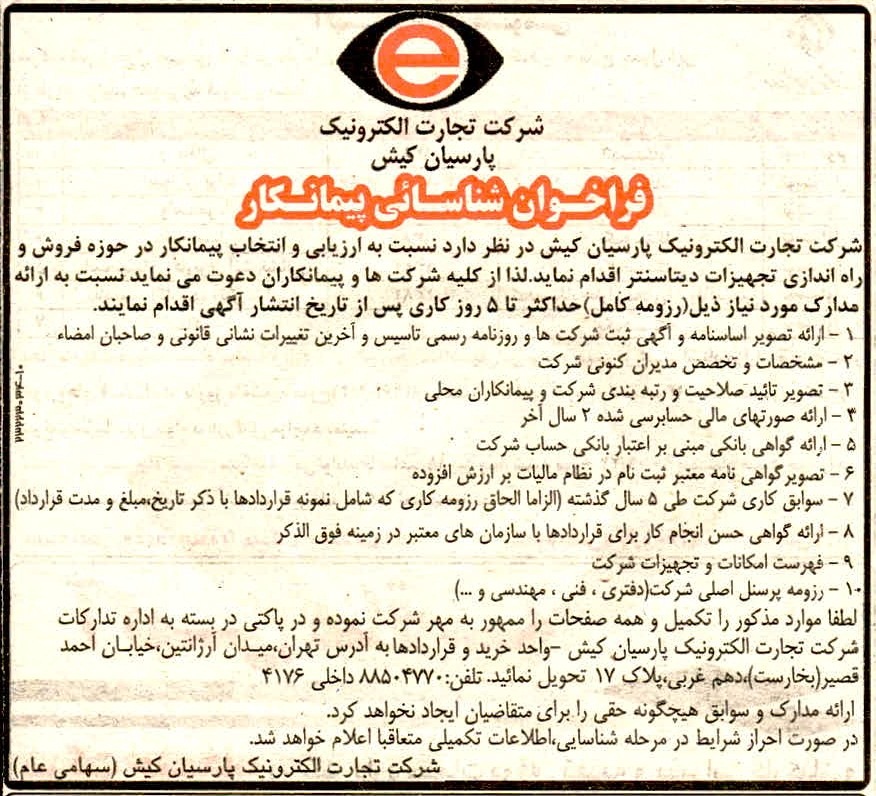 e
شرکت تجارت الکترونیک
پارسیان کیش
فراخوان شناسائی پیمانکار
شرکت تجارت الکترونیک پارسیان کیش در نظر دارد نسبت به ارزیابی و انتخاب پیمانکار در حوزه فروش و
راه اندازی تجهیزات دیتاسنتر اقدام نماید.لذا از کلیه شرکت ها و پیمانکاران دعوت می نماید نسبت به ارائه
مدارک مورد نیاز ذیل(رزومه کامل)حداکثر تا ۵ روز کاری پس از تاریخ انتشار آگهی اقدام نمایند.
۱ - ارائه تصویر اساسنامه و آگهی ثبت شرکت ها و روزنامه رسمی تاسیس و آخرین تغییرات نشانی قانونی و صاحبان امضاء
۲ - مشخصات و تخصص مدیران کنونی شرکت
۳ - تصویر تائید صلاحیت و رتبه بندی شرکت و پیمانکاران محلی
۴ - ارائه صورتهای مالی حسابرسی شده ۲ سال آخر
۵ - ارائه گواهی بانکی مبنی بر اعتبار بانکی حساب شرکت
۶ - تصویرگواهی نامه معتبر ثبت نام در نظام مالیات بر ارزش افزوده
۷ - سوابق کاری شرکت طی ۵ سال گذشته (الزاما الحاق رزومه کاری که شامل نمونه قراردادها با ذکر تاریخ،مبلغ و مدت قرارداد)
۸ - ارائه گواهی حسن انجام کار برای قراردادها با سازمان های معتبر در زمینه فوق الذکر
۹ - فهرست امکانات و تجهیزات شرکت
۱۰ - رزومه پرسنل اصلی شرکت(دفتری ، فنی ، مهندسی و ...)
لطفا موارد مذکور را تکمیل و همه صفحات را ممهور به مهر شرکت نموده و در پاکتی در بسته به اداره تدارکات
شرکت تجارت الکترونیک پارسیان کیش -واحد خرید و قراردادها به آدرس تهران،میدان آرژانتین،خیابان احمد
قصیر(بخارست)،دهم غربی،پلاک ۱۷ تحویل نمائید. تلفن:۸۸۵۰۴۷۷۰ داخلی ۴۱۷۶
ارائه مدارک و سوابق هیچگونه حقی را برای متقاضیان ایجاد نخواهد کرد.
در صورت احراز شرایط در مرحله شناسایی،اطلاعات تکمیلی متعاقبا اعلام خواهد شد.
شرکت تجارت الکترونیک پارسیان کیش (سهامی عام)